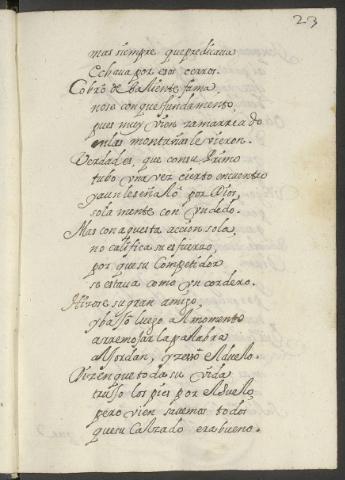 23
mas siempre que predicaua
Echaua por esos cerros.
Cobró de baliente fama,
nose con que fundamento,
pues muy vien zamarreado
en las montañas le vieron.
Verdad es, que con su Primo
tubo vna vez cierto encuentro
y aun le señaló por Dios,
sola mente con vn dedo.
Mas con aquesta accion sola,
no califica su esfuerzo,
por que su Competidor
se estaua como vn cordero.
Hizose su gran amigo,
y bajó luego al momento
a remojar la palabra
al Jordan, y zesó el duelo.
Dizen que toda su vida
trujo los pies por el suelo,
pero vien sauemos todos
que su Calzado era bueno.